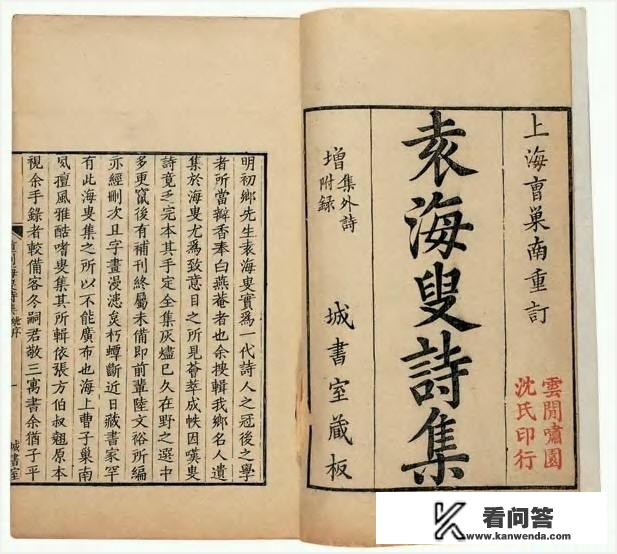 上海曹巢南重訂
袁海叟詩集
增集外詩
附録
城書室蔵板
雲間嘯園
沈氏印行
明初鄉先生袁海叟實爲一代詩人之冠後之學
者所當瓣香奉白燕菴者也余搜輯我鄉名人遺
集於海叟尤爲致意目之所見薈萃成帙因嘆叟
詩竟乏完本其手定全集灰燼已久在野之選中
多更竄後有補刊終屬未備即前輩陸文裕所編
亦經刪次且字畫漫漶矣朽蟫斷近日藏書家罕
有此海叟集之所以不能廣布也海上曹子巢南
夙擅風雅酷嗜叟集其所輯依張方伯叔翹原本
視余手錄者較備客冬嗣君敬三寓書余猶子平
序 一 城書室
看问答
www.kanwenda.com